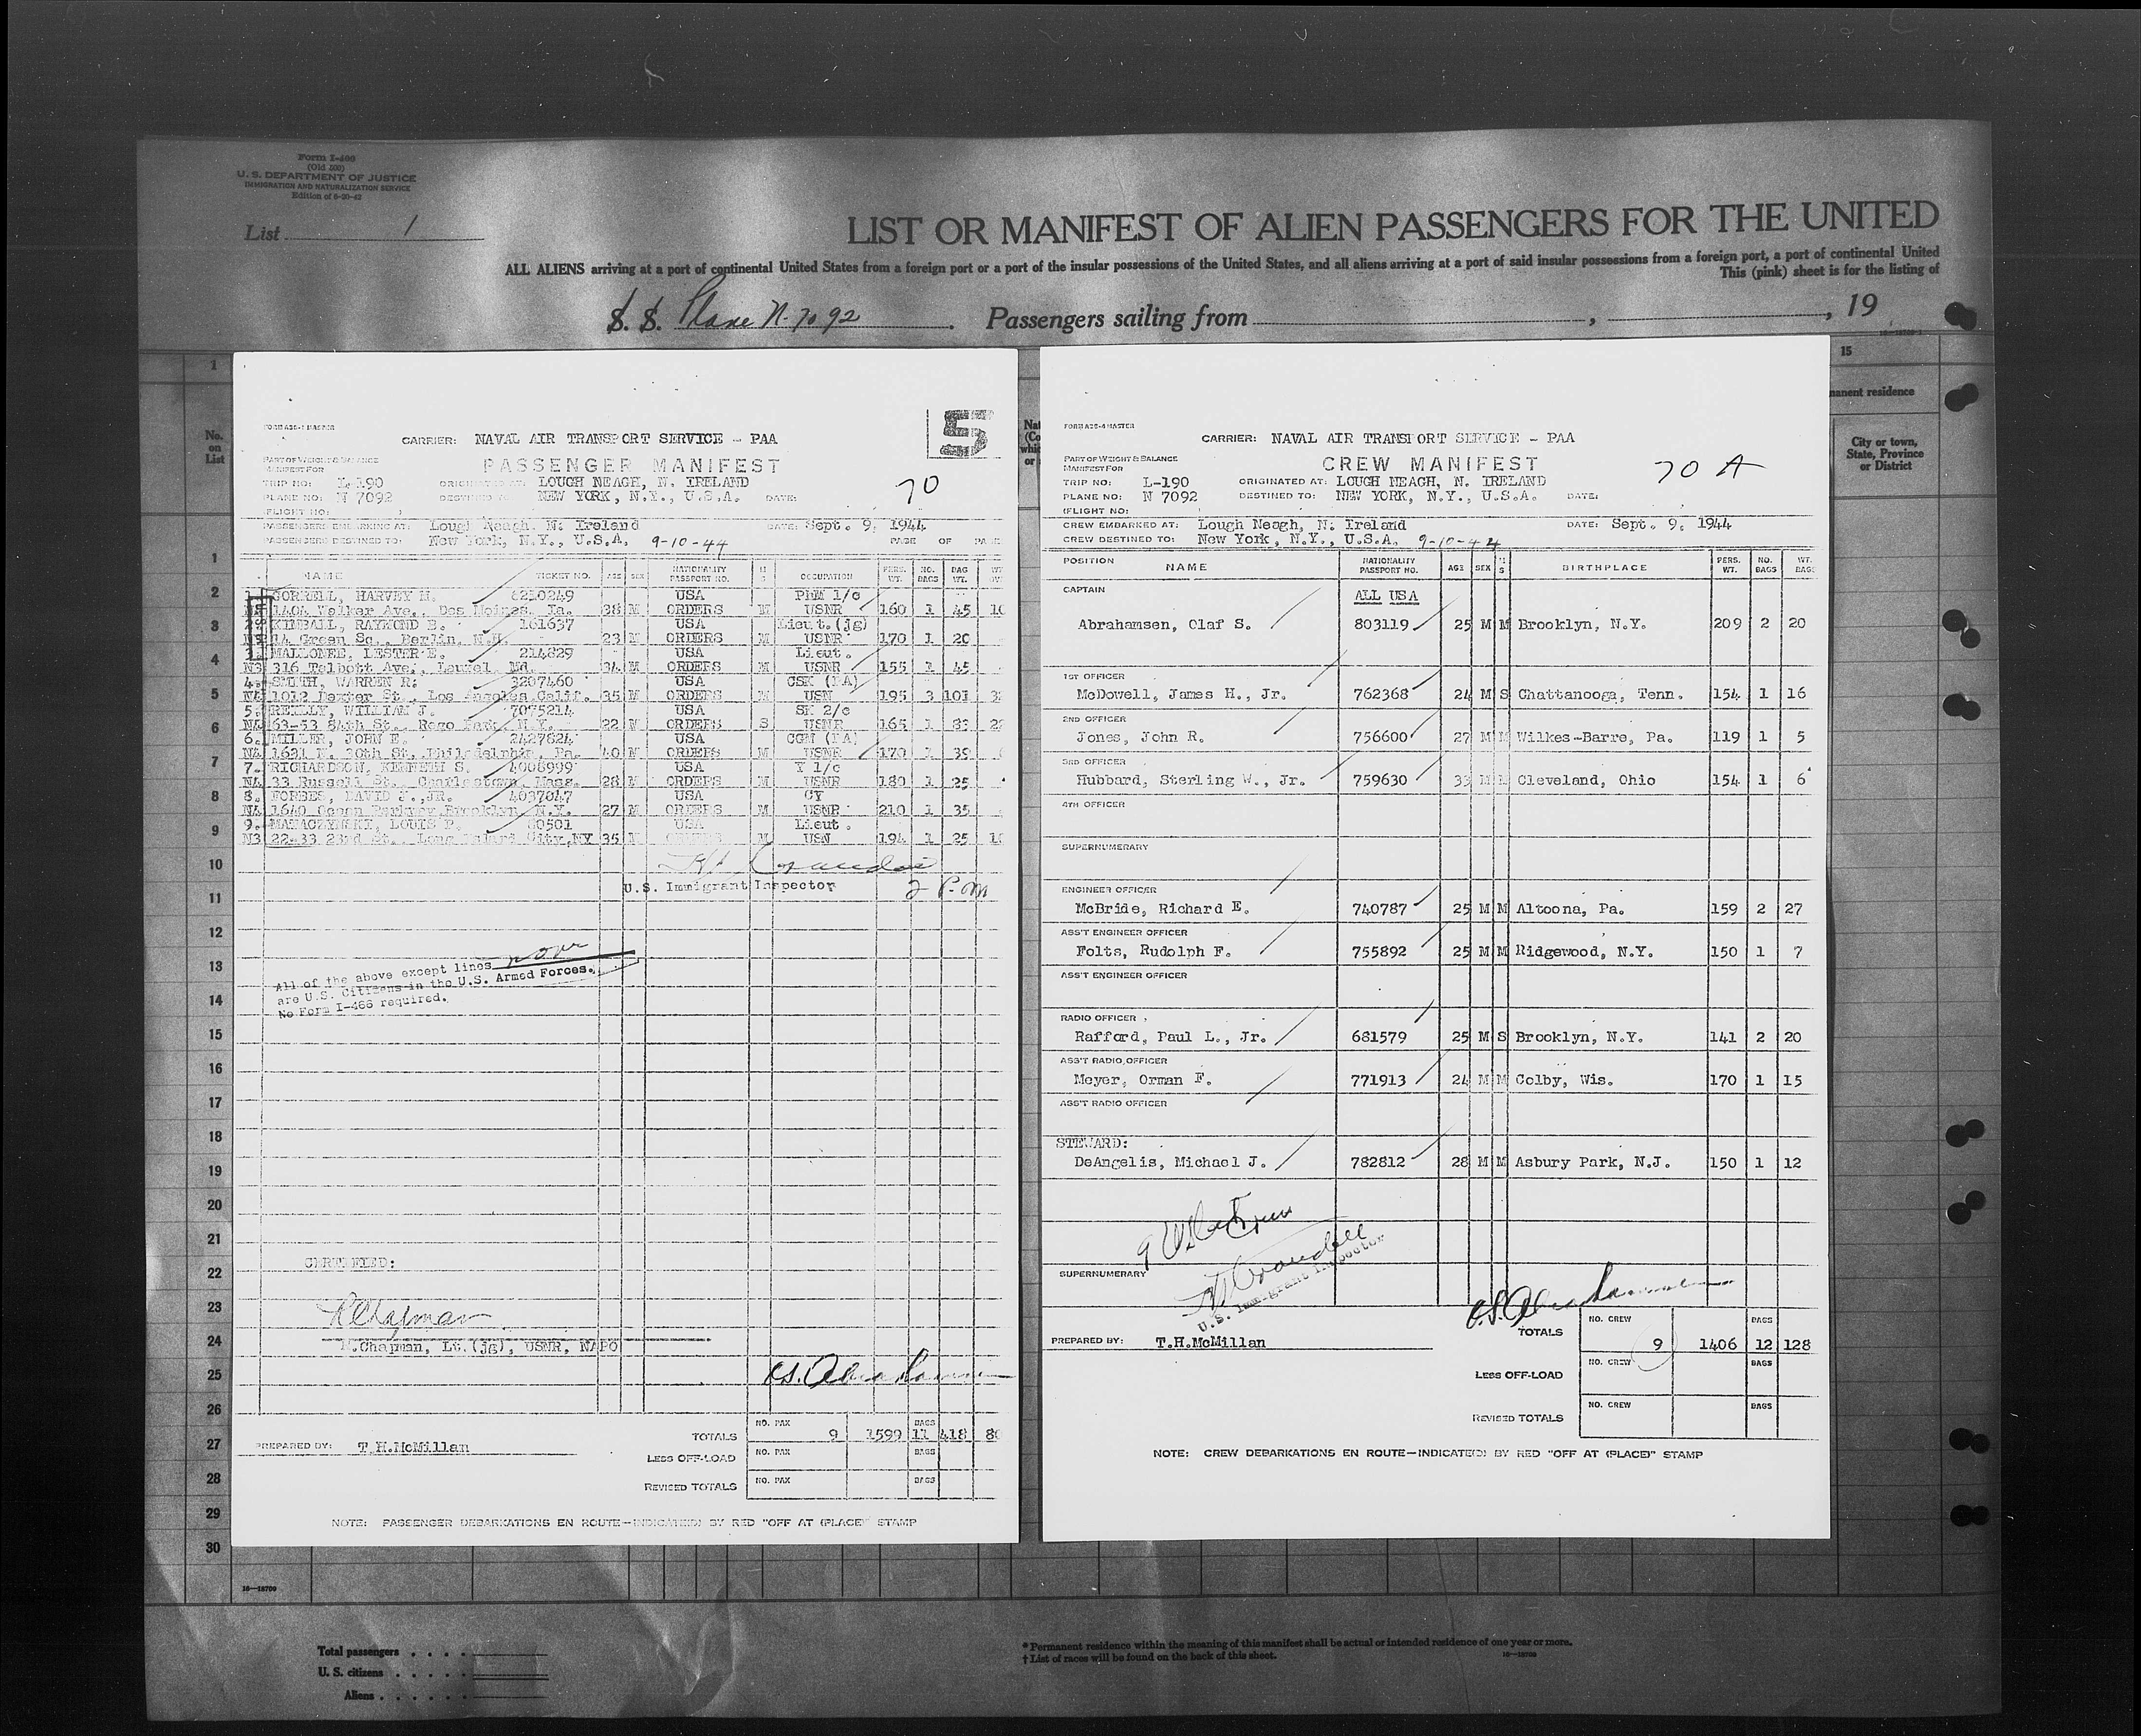 Form I-466
(Old 500)
U. S. DEPARTMENT OF JUSTICE
IMMIGRATION AND NATURALIZATION SERVICE
Edition of 6-20-42
List 1
LIST OR MANIFEST OF ALIEN PASSENGERS FOR THE UNITED
ALL ALIENS arriving at a port of continental United States from a foreign port or a port of the insular possessions of the United States, and all aliens arriving at a port of said insular possessions from a foreign port, a port of continental United
This (pink) sheet is for the listing of
S. S. Plane N-7092. Passengers sailing from , , 19
CARRIER: NAVAL AIR TRANSPORT SERVICE - PAA
5
PASSENGER MANIFEST
PART OF WEIGHT & BALANCE
MANIFEST FOR
TRIP NO: L-190 ORIGINATED AT: LOUGH NEAGH, N. IRELAND
70
PLANE NO: N 7092 DESTINED TO: NEW YORK, N.Y., U.S.A. DATE:
FLIGHT NO:
PASSENGERS EMBARKING AT: Lough Neagh. N. Ireland DATE: Sept. 9, 1944
PASSENGERS DESTINED TO: New York, N.Y., U.S.A. 9-10-44 PAGE OF
NAME TICKET NO. AGE SEX NATIONALITY PASSPORT NO. M S OCCUPATION PERS. WT. NO. BAGS BAG WT.
1. GORRELL, HARVEY H. 6210249 USA PhM 1/c
1404 Walker Ave., Des Moines, Ia. 38 M ORDERS M USNR 160 1 45
KIMBALL, RAYMOND B. 161637 USA Lieut.(jg)
14 Green Sq., Berlin, N.H. 23 M ORDERS M USNR 170 1 20
3. MALLONEE, LESTER E. 214829 USA Lieut.
N3 316 Talbott Ave., Laurel Md. 34 M ORDERS M USNR 155 1 45
4. SMITH, WARREN R. 3207460 USA CSK (PA)
N4 1012 Dexter St., Los Angeles, Calif. 35 M ORDERS M USN 195 3 101
5. REILLY, WILLIAM J. 7075214 USA SK 2/c
N4 63-53 84th St., Rego Park, N.Y. 22 M ORDERS S USNR 165 1 83
6. MILLER, JOHN E. 2427624 USA CGM (PA)
N4 1631 N. 30th St. Philadelphia, Pa. 40 M ORDERS M USNR 170 1 39
7. RICHARDSON, KENNETH S. 4006999 USA Y 1/c
N4 33 Russell St., Charlestown, Mass. 28 M ORDERS M USNR 180 1 25
8. FORBES, DAVID J., JR. 4037047 USA CY
N4 1640 Ocean Parkway, Brooklyn, N.Y. 27 M ORDERS M USNR 210 1 35
9. MATACZYNSKI, LOUIS P. 80501 USA Lieut.
N3 22-33 23rd St., Long Island City, NY 35 M ORDERS M USN 194 1 25
U.S. Immigrant Inspector 2 P.M
All of the above except lines none
are U.S. Citizens in the U.S. Armed Forces.
No Form I-466 required.
CERTIFIED:
R Chapman
R.Chapman, Lt.(jg), USNR, NAPO
O.S. Abrahamsen
NO. PAX BAGS
TOTALS 9 1599 11 418
PREPARED BY: T.H.McMillan
LESS OFF-LOAD NO. PAX BAGS
REVISED TOTALS NO. PAX BAGS
NOTE: PASSENGER DEBARKATIONS EN ROUTE—INDICATED BY RED "OFF AT (PLACE)" STAMP
FORM A26-4 MASTER
CARRIER: NAVAL AIR TRANSPORT SERVICE - PAA
PART OF WEIGHT & BALANCE
MANIFEST FOR
CREW MANIFEST
70 A
TRIP NO: L-190 ORIGINATED AT: LOUGH NEAGH, N. IRELAND
PLANE NO: N 7092 DESTINED TO: NEW YORK, N.Y., U.S.A. DATE:
(FLIGHT NO:
CREW EMBARKED AT: Lough Neagh, N. Ireland DATE: Sept. 9, 1944
CREW DESTINED TO: New York, N.Y., U.S.A. 9-10-44
POSITION NAME NATIONALITY PASSPORT NO. AGE SEX M S BIRTHPLACE PERS. WT. NO. BAGS WT. BAGS
CAPTAIN ALL USA
Abrahamsen, Olaf S. 803119 25 M M Brooklyn, N.Y. 209 2 20
1ST OFFICER
McDowell, James H., Jr. 762368 24 M S Chattanooga, Tenn. 154 1 16
2ND OFFICER
Jones, John R. 756600 27 M M Wilkes-Barre, Pa. 119 1 5
3RD OFFICER
Hubbard, Sterling W., Jr. 759630 33 M M Cleveland, Ohio 154 1 6
4TH OFFICER
SUPERNUMERARY
ENGINEER OFFICER
McBride, Richard E. 740787 25 M M Altoona, Pa. 159 2 27
ASS'T ENGINEER OFFICER
Folts, Rudolph F. 755892 25 M M Ridgewood, N.Y. 150 1 7
ASS'T ENGINEER OFFICER
RADIO OFFICER
Rafford, Paul L., Jr. 681579 25 M S Brooklyn, N.Y. 141 2 20
ASS'T RADIO OFFICER
Meyer, Orman F. 771913 24 M M Colby, Wis. 170 1 15
ASS'T RADIO OFFICER
STEWARD:
DeAngelis, Michael J. 782812 28 M M Asbury Park, N.J. 150 1 12
SUPERNUMERARY
U.S. Immigrant Inspector
O.S. Abrahamsen
NO. CREW BAGS
TOTALS 9 1406 12 128
PREPARED BY: T.H.McMillan
LESS OFF-LOAD NO. CREW BAGS
REVISED TOTALS NO. CREW BAGS
NOTE: CREW DEBARKATIONS EN ROUTE—INDICATED BY RED "OFF AT (PLACE)" STAMP
15
manent residence
City or town,
State, Province
or District
No.
on
List
1
2
3
4
5
6
7
8
9
10
11
12
13
14
15
16
17
18
19
20
21
22
23
24
25
26
27
28
29
30
16—18700
Total passengers
U. S. citizens
Aliens
* Permanent residence within the meaning of this manifest shall be actual or intended residence of one year or more.
† List of races will be found on the back of this sheet.
16—18700